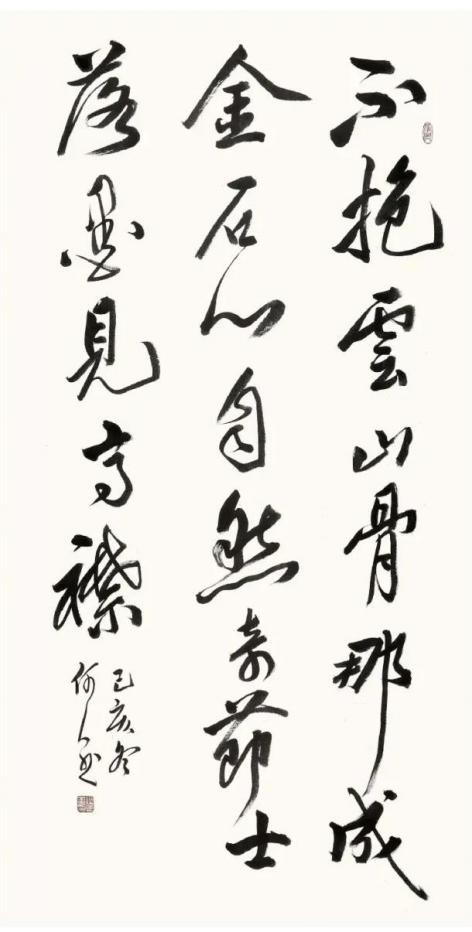 不抱雲山骨那成
金石心自然奇節士
落墨見高襟
己亥冬
何